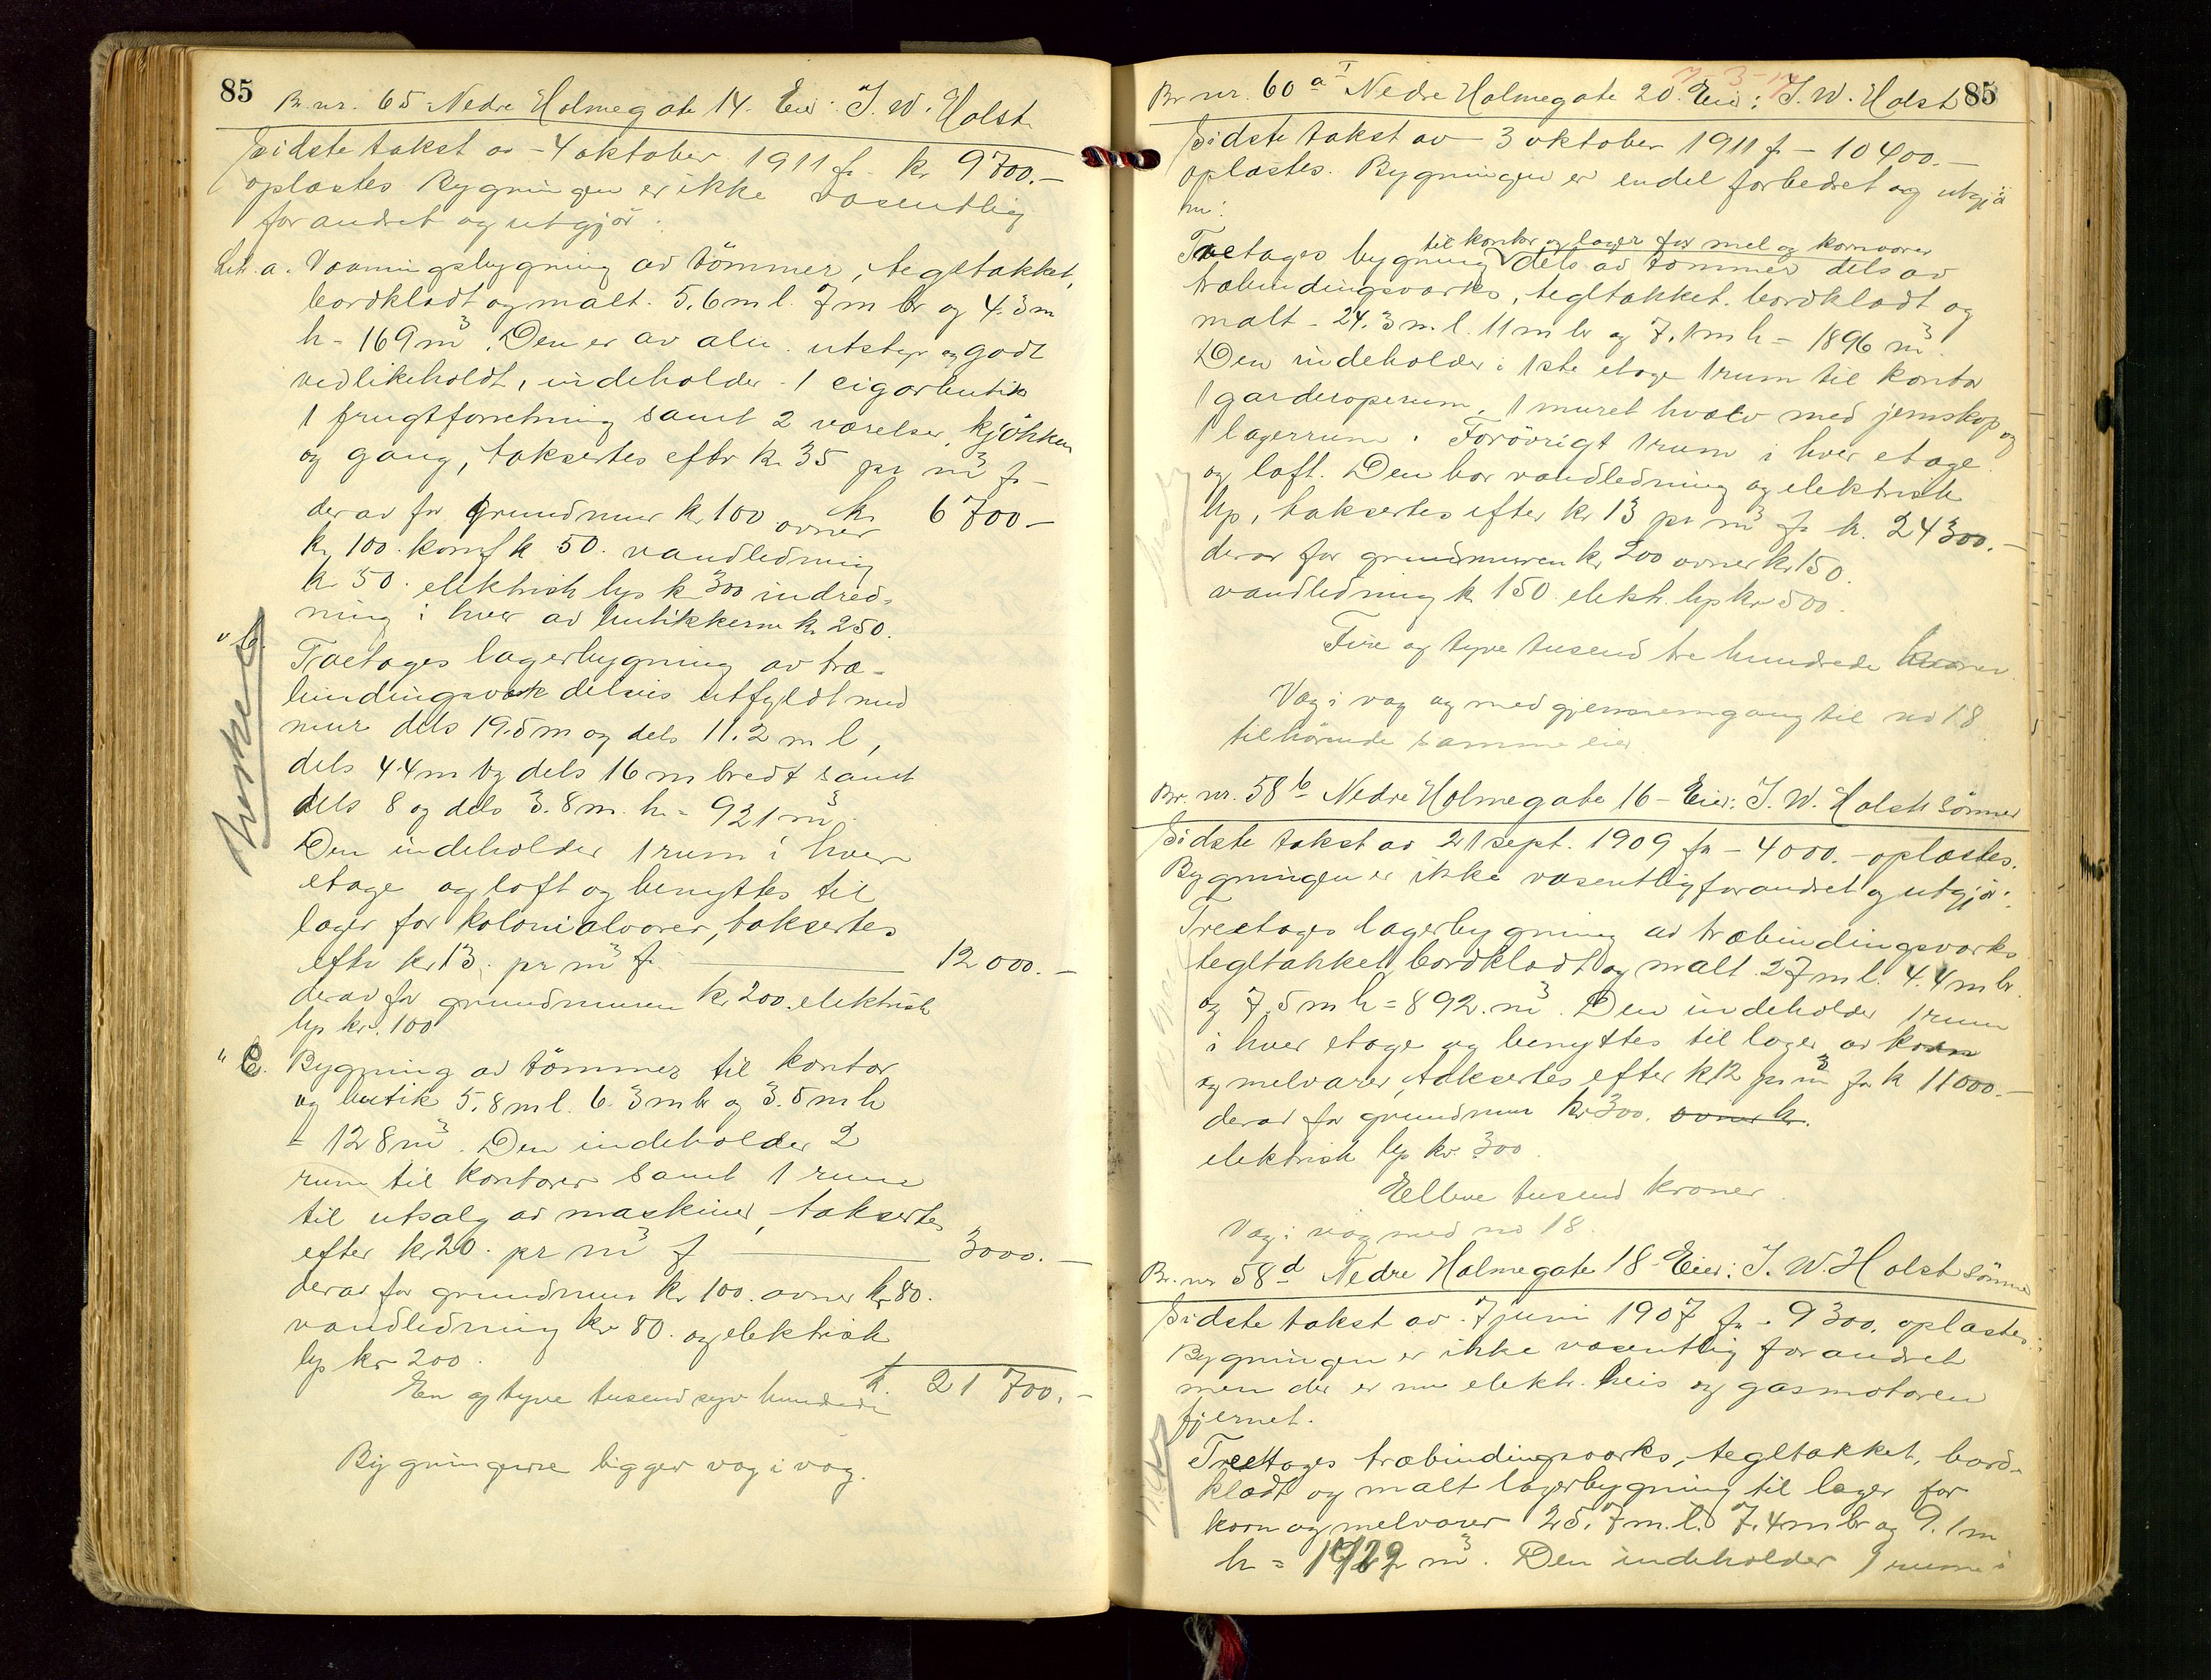 85
Br. nr. 65 Nedre Holmegate 14. Eier: J. W. Holst
Sidste takst av 4 oktober 1911 fr. kr 9700.-
oplæstes Bygningen er ikke væsentlig
forandret og utgjör:
Litr. a. Vaaningsbygning av tömmer, tegltækket,
bordklædt og malt. 5.6 m l. 7 m br og 4.3 m
h = 169 m³. Den er av alm. utstyr og godt
vedlikeholdt, indeholder 1 cigarbutik
1 frugtforretning samt 2 værelser, kjökken
og gang, taksertes efter kr 35 pr m³ fr -
kr 6700 -
derav for grundmur kr 100 ovner
kr 100. komf k 50. vandledning
kr 50. elektrisk lys kr 300 indred-
ning i hver av butikkerne kr 250.
" b. Toetages lagerbygning av træ-
bindingsværk delvis utfyldt med
mur dels 19.5 m og dels 11.2 m l,
dels 4.4 m og dels 16 m bredt samt
dels 8 og dels 3.8 m. h. = 921 m³.
Den indeholder 1 rum i hver
etage og loft og benyttes til
lager for kolonialvarer, taksertes
efter kr 13. pr m³ fr. 12000.-
derav for grundmuren kr 200. elektrisk
lys kr. 100
" C. Bygning av tömmer til kontor
og butik 5.8 m l. 6.3 m br og 3.5 m h
= 128 m³. Den indeholder 2
rum til kontorer samt 1 rum
til utsalg av maskiner, taksertes
efter kr 20. pr m³ f 3000.-
derav for grundmur kr 100. ovner kr 80.
vandledning kr 80. og elektrisk
lys kr 200.
k. 21700.-
En og tyve tusend syv hundrede
Bygningerne ligger væg i væg.
85
Br nr. 60 a I Nedre Holmegate 20. Eier: J. W. Holst
Sidste takst av 3 oktober 1911 fr - 10400.-
oplæstes. Bygningen er endel forbedret og utgjör
nu:
til kontor og lager for mel og kornvarer
Toetages bygning dels av tömmer dels av
træbindingsværks, tegltækket, bordklædt og
malt - 24.3 m. l. 11 m br og 7.1 m h = 1896 m³.
Den indeholder i 1ste etage 1 rum til kontor
1 garderoperum, 1 muret hvælv med jernskap og
1 lagerrum. Forövrigt 1 rum i hver etage
og loft. Den har vandledning og elektrisk
lys, taksertes efter kr 13 pr m³ fr k. 24300.-
derav for grundmuren kr 200 ovner kr 150.
vandledning k 150. elektr. lys kr 500.
Fire og tyve tusend tre hundrede kroner.
Væg i væg og med gjennemgang til no 18
tilhörende samme eier.
Br. nr. 58 b Nedre Holmegate 16 - Eier: J. W. Holst sönner
Sidste takst av 21 sept. 1909 fr - 4000. - oplæstes.
Bygningen er ikke væsentlig forandret og utgjör:
Treetages lagerbygning av træbindingsværks
tegltækket, bordklædt og malt 27 m l. 4.4 m br.
og 7.5 m h = 892. m³. Den indeholder 1 rum
i hver etage og benyttes til lager av korn
og melvarer, taksertes efter kr 12 pr m³ fr k 11000.-
derav for grundmur kr 300. ovner k.
elektrisk lys kr. 300.
Elleve tusend kroner.
Væg i væg med no 18.
Br. nr 58 d Nedre Holmegate 18 - Eier: J. W. Holst sönner
Sidste takst av 7 juni 1907 fr - 9300. oplæstes:
Bygningen er ikke væsentlig forandret
men der er nu elektr. heis og gasmotoren
fjernet.
Treetages træbindingsværks, tegltækket, bord-
klædt og malt lagerbygning til lager for
korn og melvarer 25.7 m. l. 7.4 m br og 9.1 m
h = m³. Den indeholder 1 rum i